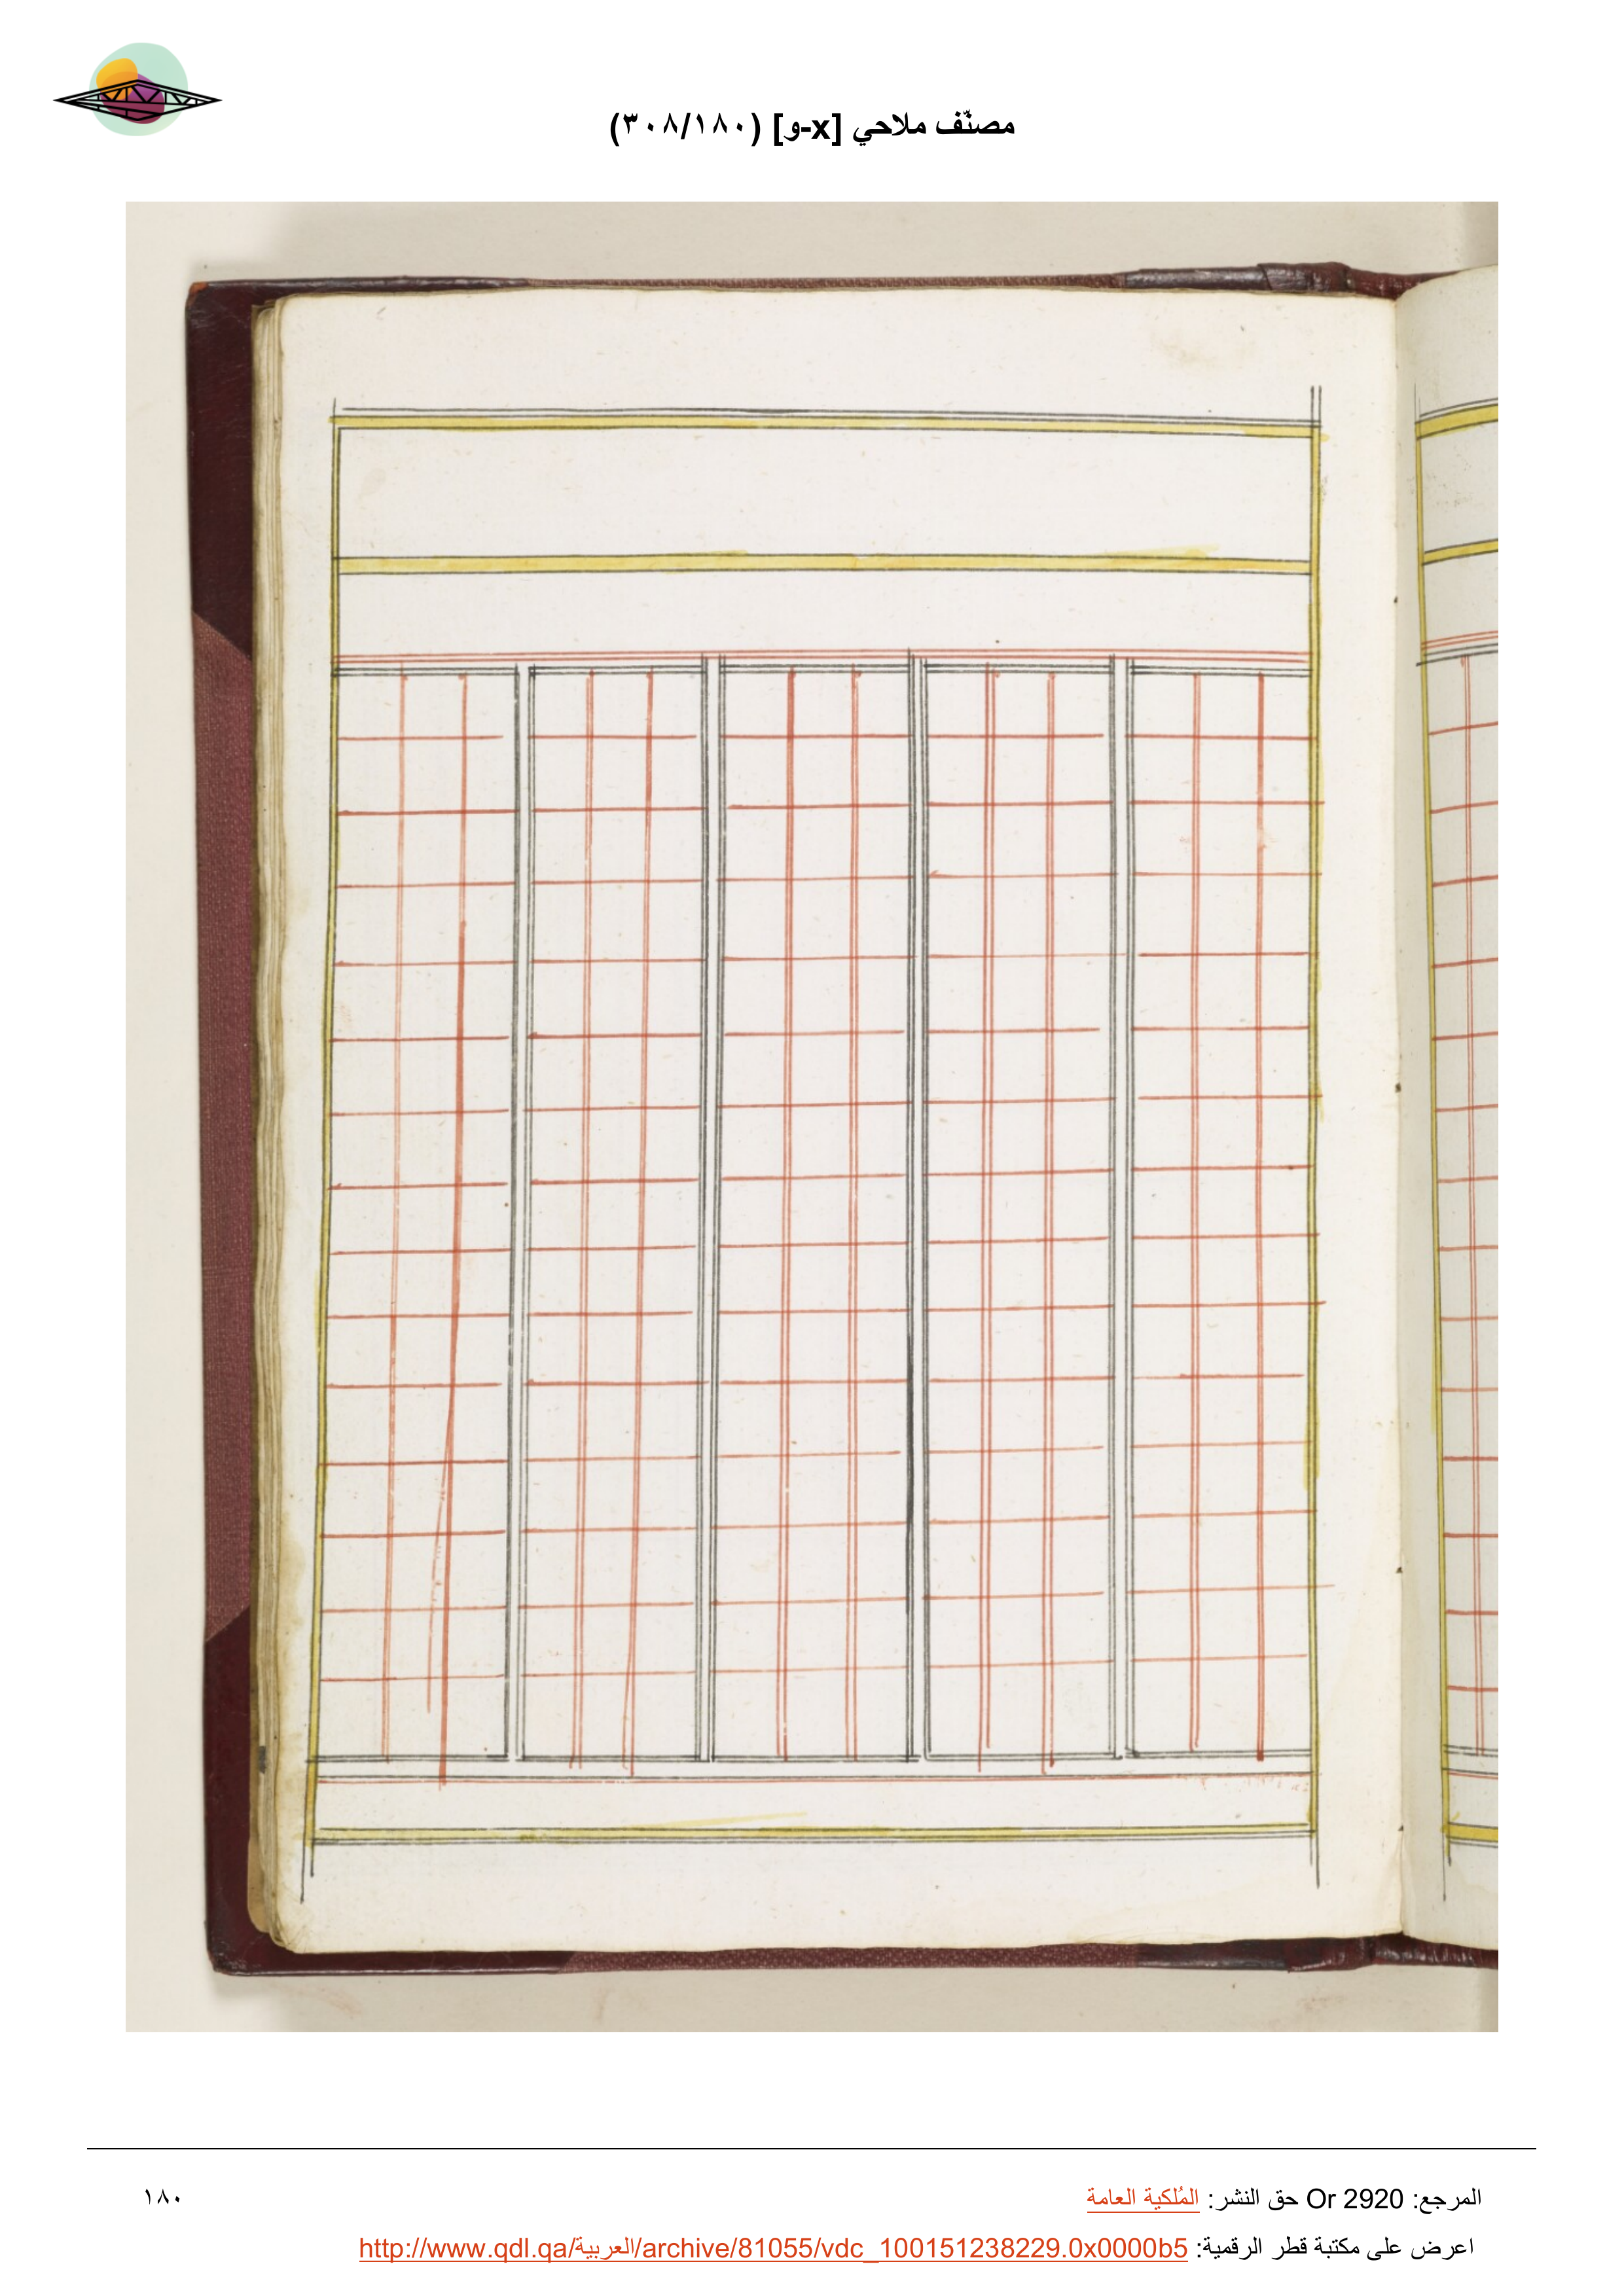 مصنّف ملاحي [x-و] (٣٠٨/١٨٠)
المرجع: Or 2920 حق النشر: المُلكية العامة
١٨٠
اعرض على مكتبة قطر الرقمية: http://www.qdl.qa/العربية/archive/81055/vdc_100151238229.0x0000b5